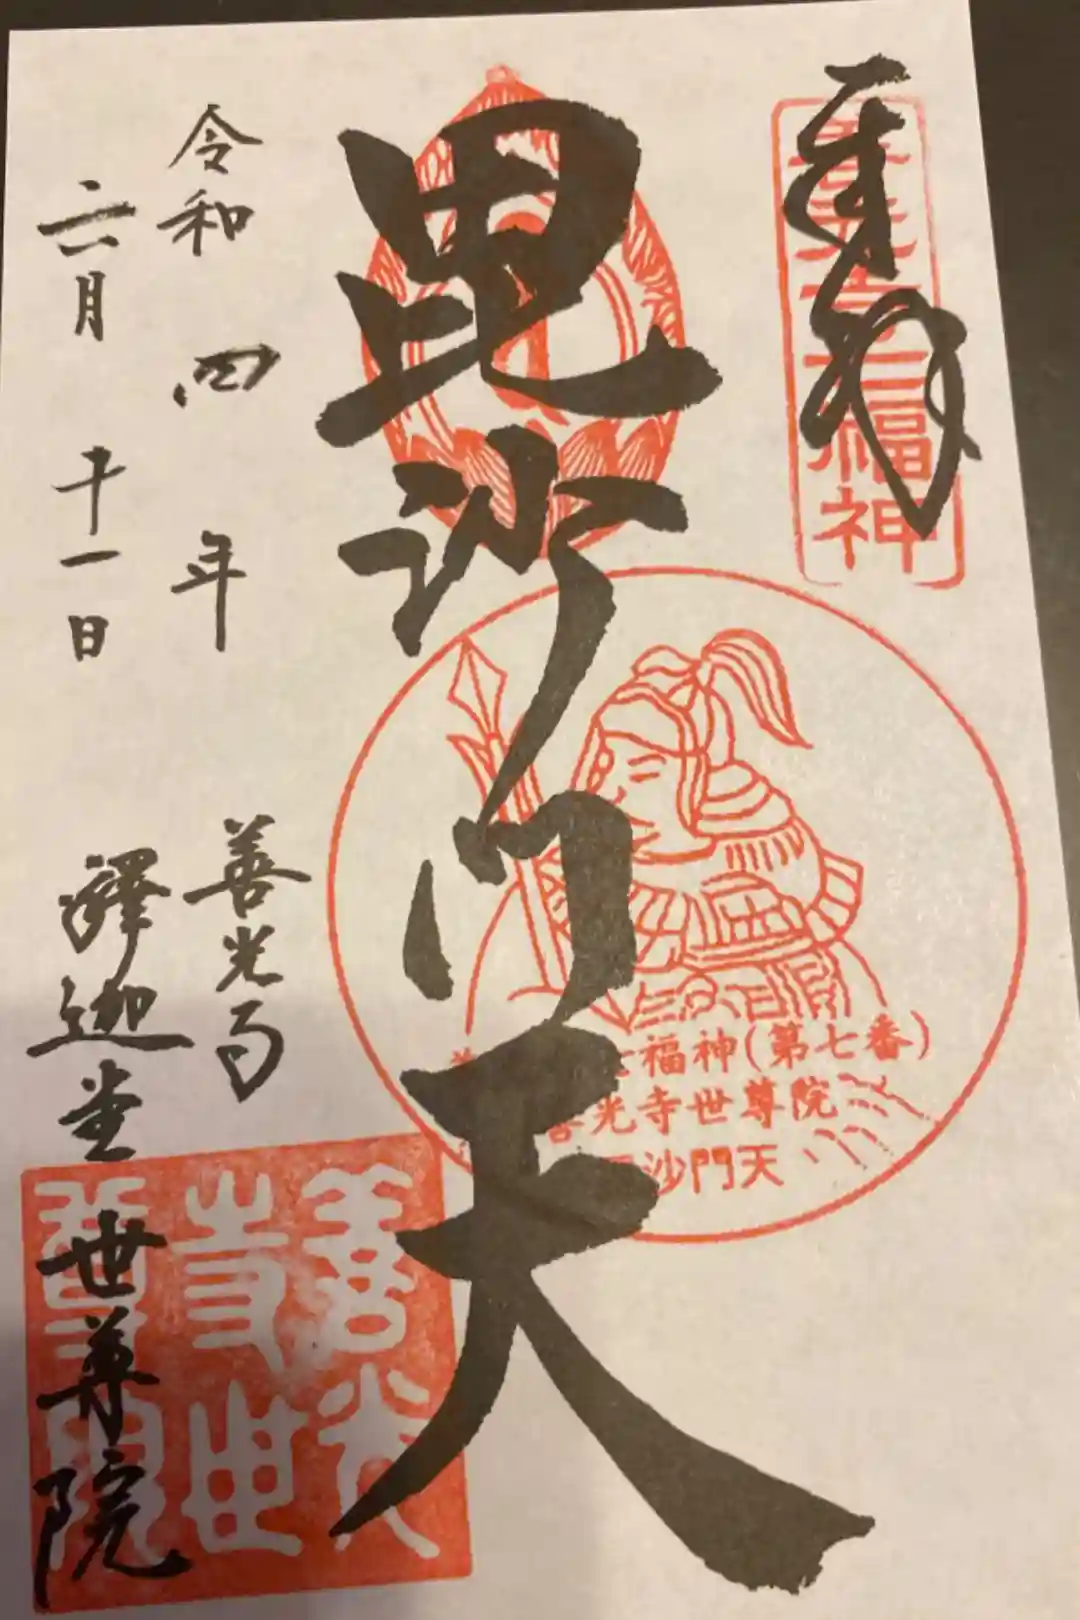 奉拝
福神
毘沙門天
七福神(第七番)
善光寺世尊院
毘沙門天
令和四年
六月十一日
善光寺
釋迦堂世尊院
善光
寺世
尊院